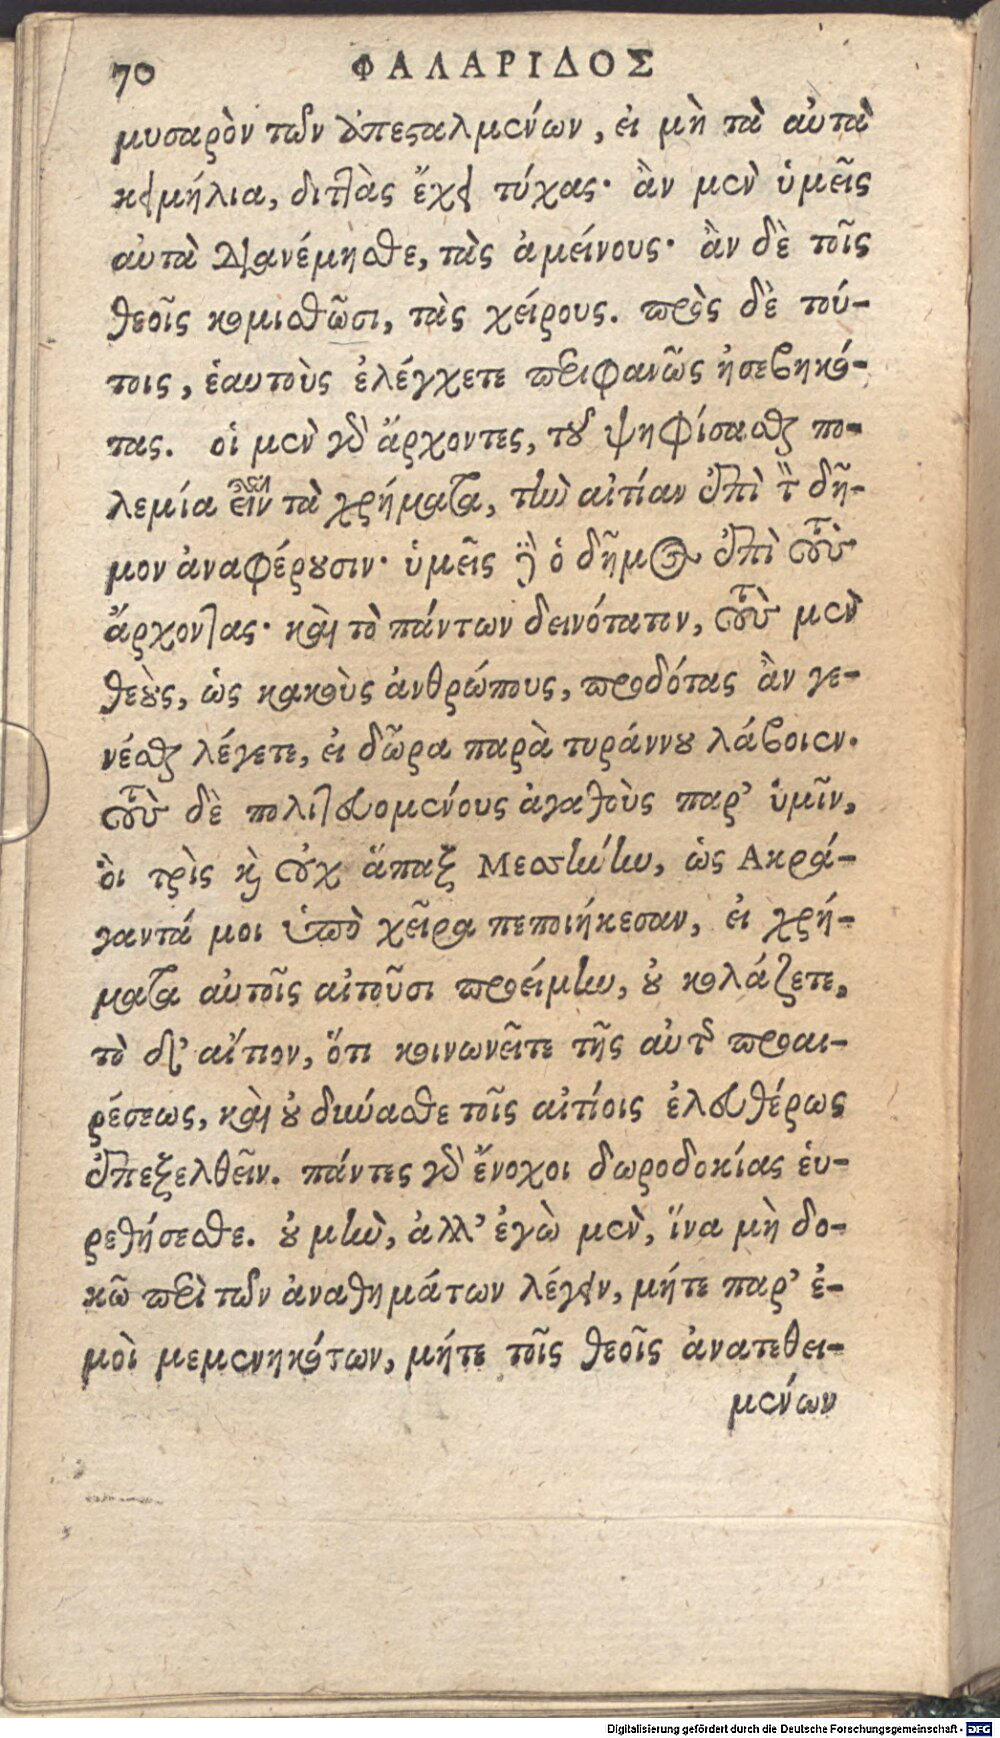 70 ΦΑΛΑΡΙΔΟΣ
μυσαρὸν τῶν ἀπεσταλμένων, εἰ μὴ τὰ αὐτὰ
κειμήλια, διττὰς ἔχει τύχας· ἂν μὲν ὑμεῖς
αὐτὰ διανέμησθε, τὰς ἀμείνους· ἂν δὲ τοῖς
θεοῖς κομισθῶσι, τὰς χείρους. πρὸς δὲ τού-
τοις, ἑαυτοὺς ἐλέγχετε περιφανῶς ἠσεβηκό-
τας. οἱ μὲν γὸ ἄρχοντες, τοῦ ψηφίσασθαι πο-
λεμία εἶν τὰ χρήματα, τὴν αἰτίαν ἐπὶ τὸν δῆ-
μον ἀναφέρουσιν· ὑμεῖς δὲ ὁ δῆμος ἐπὶ τοὺς
ἄρχοντας· καὶ τὸ πάντων δεινότατον, τοὺς μὲν
θεοὺς, ὡς κακοὺς ἀνθρώπους, προδότας ἂν γε-
νέσθαι λέγετε, εἰ δῶρα παρὰ τυράννου λάβοιεν.
τοὺς δὲ πολιτευομένους ἀγαθοὺς παρ' ὑμῖν,
οἳ τρὶς καὶ οὐχ ἅπαξ Μεσσήνην, ὡς Ἀκρά-
γαντά μοι ὑπὸ χεῖρα πεποιήκεσαν, εἰ χρή-
ματα αὐτοῖς αἰτοῦσι προείμην, οὐ κολάζετε,
τὸ δ' αἴτιον, ὅτι κοινωνεῖτε τῆς αὐτῆς προαι-
ρέσεως, καὶ οὐ δύνασθε τοῖς αἰτίοις ἐλευθέρως
ἐπεξελθεῖν. πάντες γὰρ ἔνοχοι δωροδοκίας εὑ-
ρεθήσεσθε. οὐ μὴν, ἀλλ' ἐγὼ μὲν, ἵνα μὴ δο-
κῶ περὶ τῶν ἀναθημάτων λέγειν, μήτε παρ' ἐ-
μοὶ μεμενηκότων, μήτε τοῖς θεοῖς ἀνατεθει-
μένων
Digitalisierung gefördert durch die Deutsche Forschungsgemeinschaft - DFG